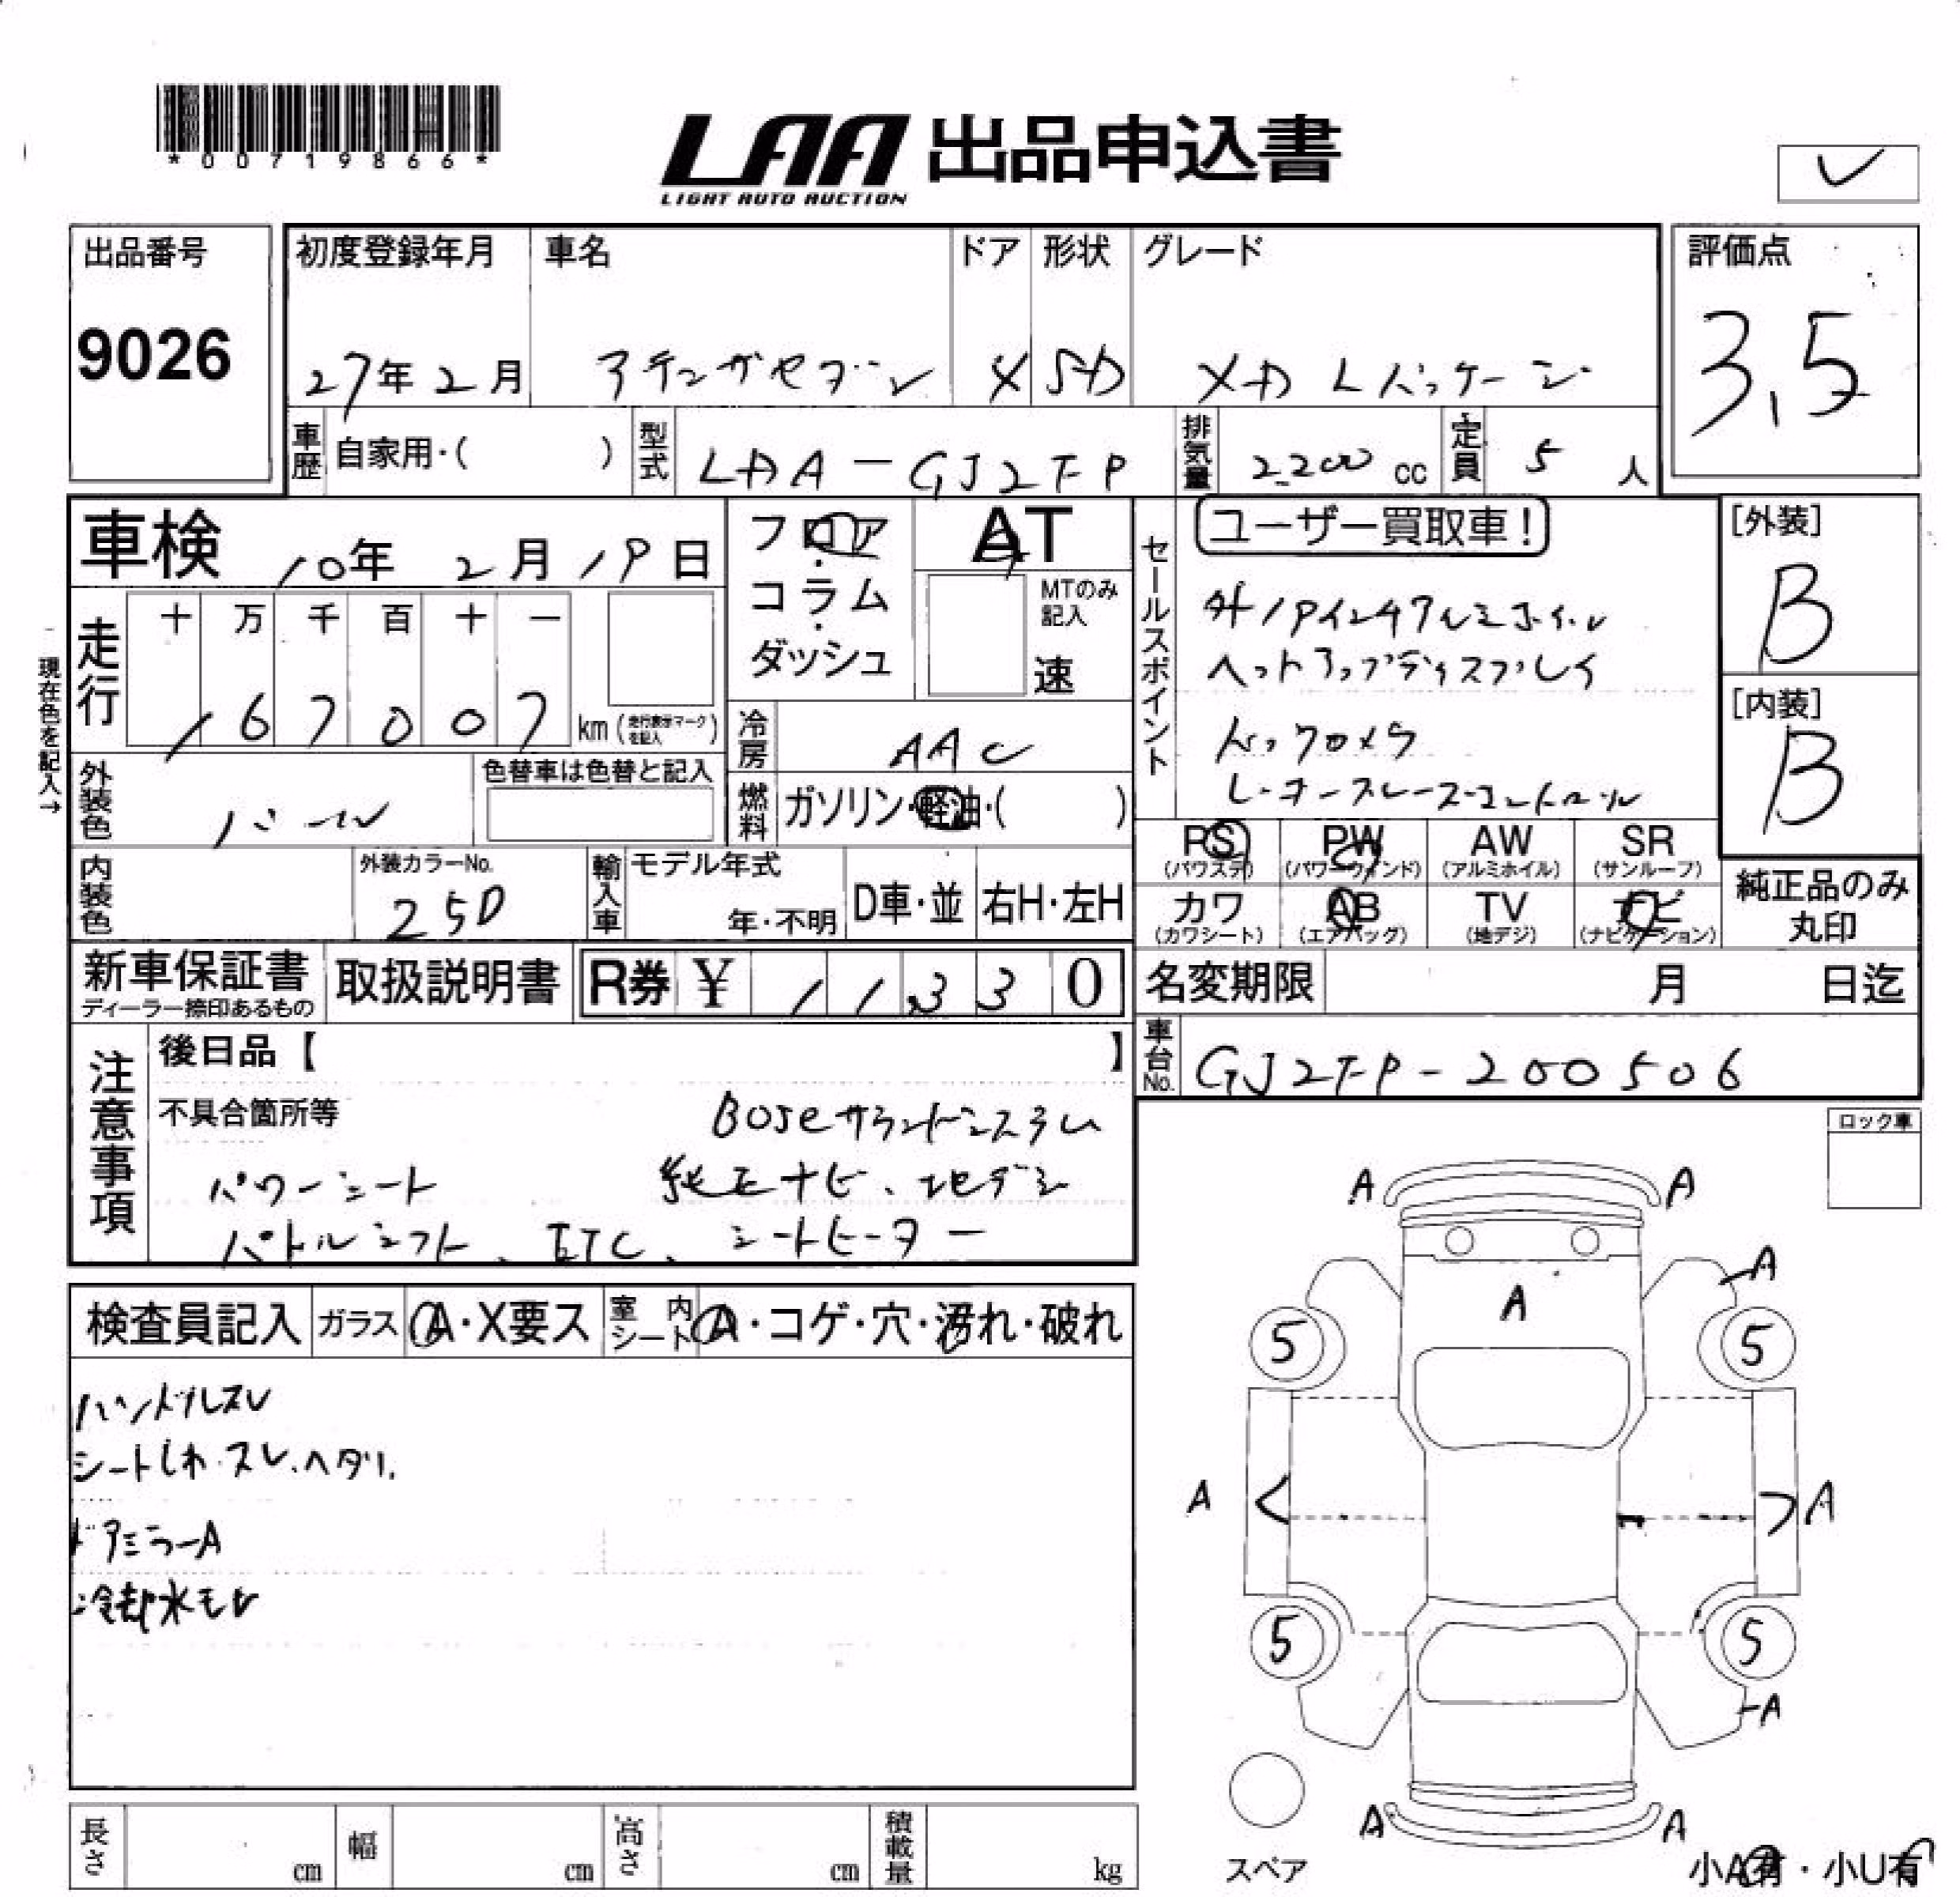 *00719866*
LAA 出品申込書
LIGHT AUTO AUCTION
出品番号
9026
初度登録年月
27年2月
車名
アテンザセダン
ドア
4
形状
SD
グレード
XD Lパッケージ
評価点
3.5
車歴 自家用・( )
型式 LDA-GJ2FP
排気量 2200 cc
定員 5 人
車検 10年 2月 19日
走行
十 万 千 百 十 一
1 6 7 0 0 7 km (走行表示マークを記入)
現在色を記入→
外装色 パール
色替車は色替と記入
内装色
外装カラーNo.
25D
輸入車
モデル年式
年・不明
D車・並
右H・左H
フロア・コラム・ダッシュ
AT
MTのみ記入
速
冷房 AAC
燃料 ガソリン・軽油・( )
セールスポイント
ユーザー買取車!
外19インチアルミホイル
ヘットアップディスプレイ
バックカメラ
レーダークルーズコントロール
[外装]
B
[内装]
B
RS (パワステ)
PW (パワーウィンド)
AW (アルミホイル)
SR (サンルーフ)
カワ (カワシート)
AB (エアバッグ)
TV (地デジ)
ナビ (ナビゲーション)
純正品のみ丸印
新車保証書
ディーラー捺印あるもの
取扱説明書
R券 ¥ 11330
名変期限 月 日迄
車台No. GJ2FP-200506
注意事項
後日品【 】
不具合箇所等
BOSEサウンドシステム
パワーシート 純正ナビ、地デジ
パドルシフト、ETC、シートヒーター
ロック車
検査員記入
ガラス A・X要ス
室内シート A・コゲ・穴・汚れ・破れ
ハンドルスレ
シートしわ・スレ、ヘタリ
ドアミラーA
冷却水モレ
A A
A
A
5 5
A A
5 5
A
A A
スペア
小A有・小U有
長さ cm
幅 cm
高さ cm
積載量 kg